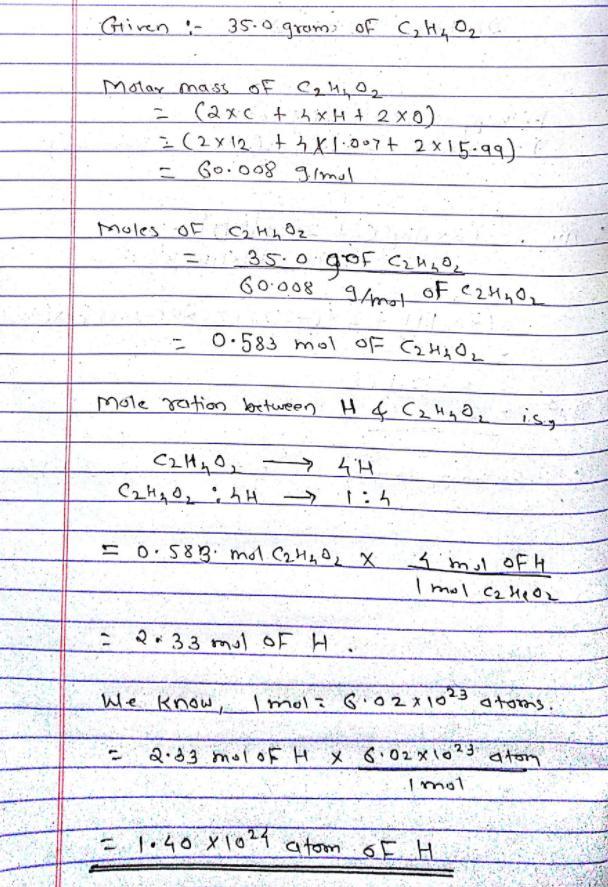 Given :- 35.0 grams of C₂H₄O₂
Molar mass of C₂H₄O₂
= (2×C + 4×H + 2×O)
= (2×12 + 4×1.007 + 2×15.99)
= 60.008 g/mol
Moles of C₂H₄O₂
= 35.0 g of C₂H₄O₂
60.008 g/mol of C₂H₄O₂
= 0.583 mol of C₂H₄O₂
Mole ration between H & C₂H₄O₂ is,
C₂H₄O₂ → 4H
C₂H₄O₂ : 4H → 1:4
= 0.583 mol C₂H₄O₂ × 4 mol of H
1 mol C₂H₄O₂
= 2.33 mol of H.
We know, 1 mol = 6.02×10²³ atoms.
= 2.33 mol of H × 6.02×10²³ atom
1 mol
= 1.40 × 10²⁴ atom of H